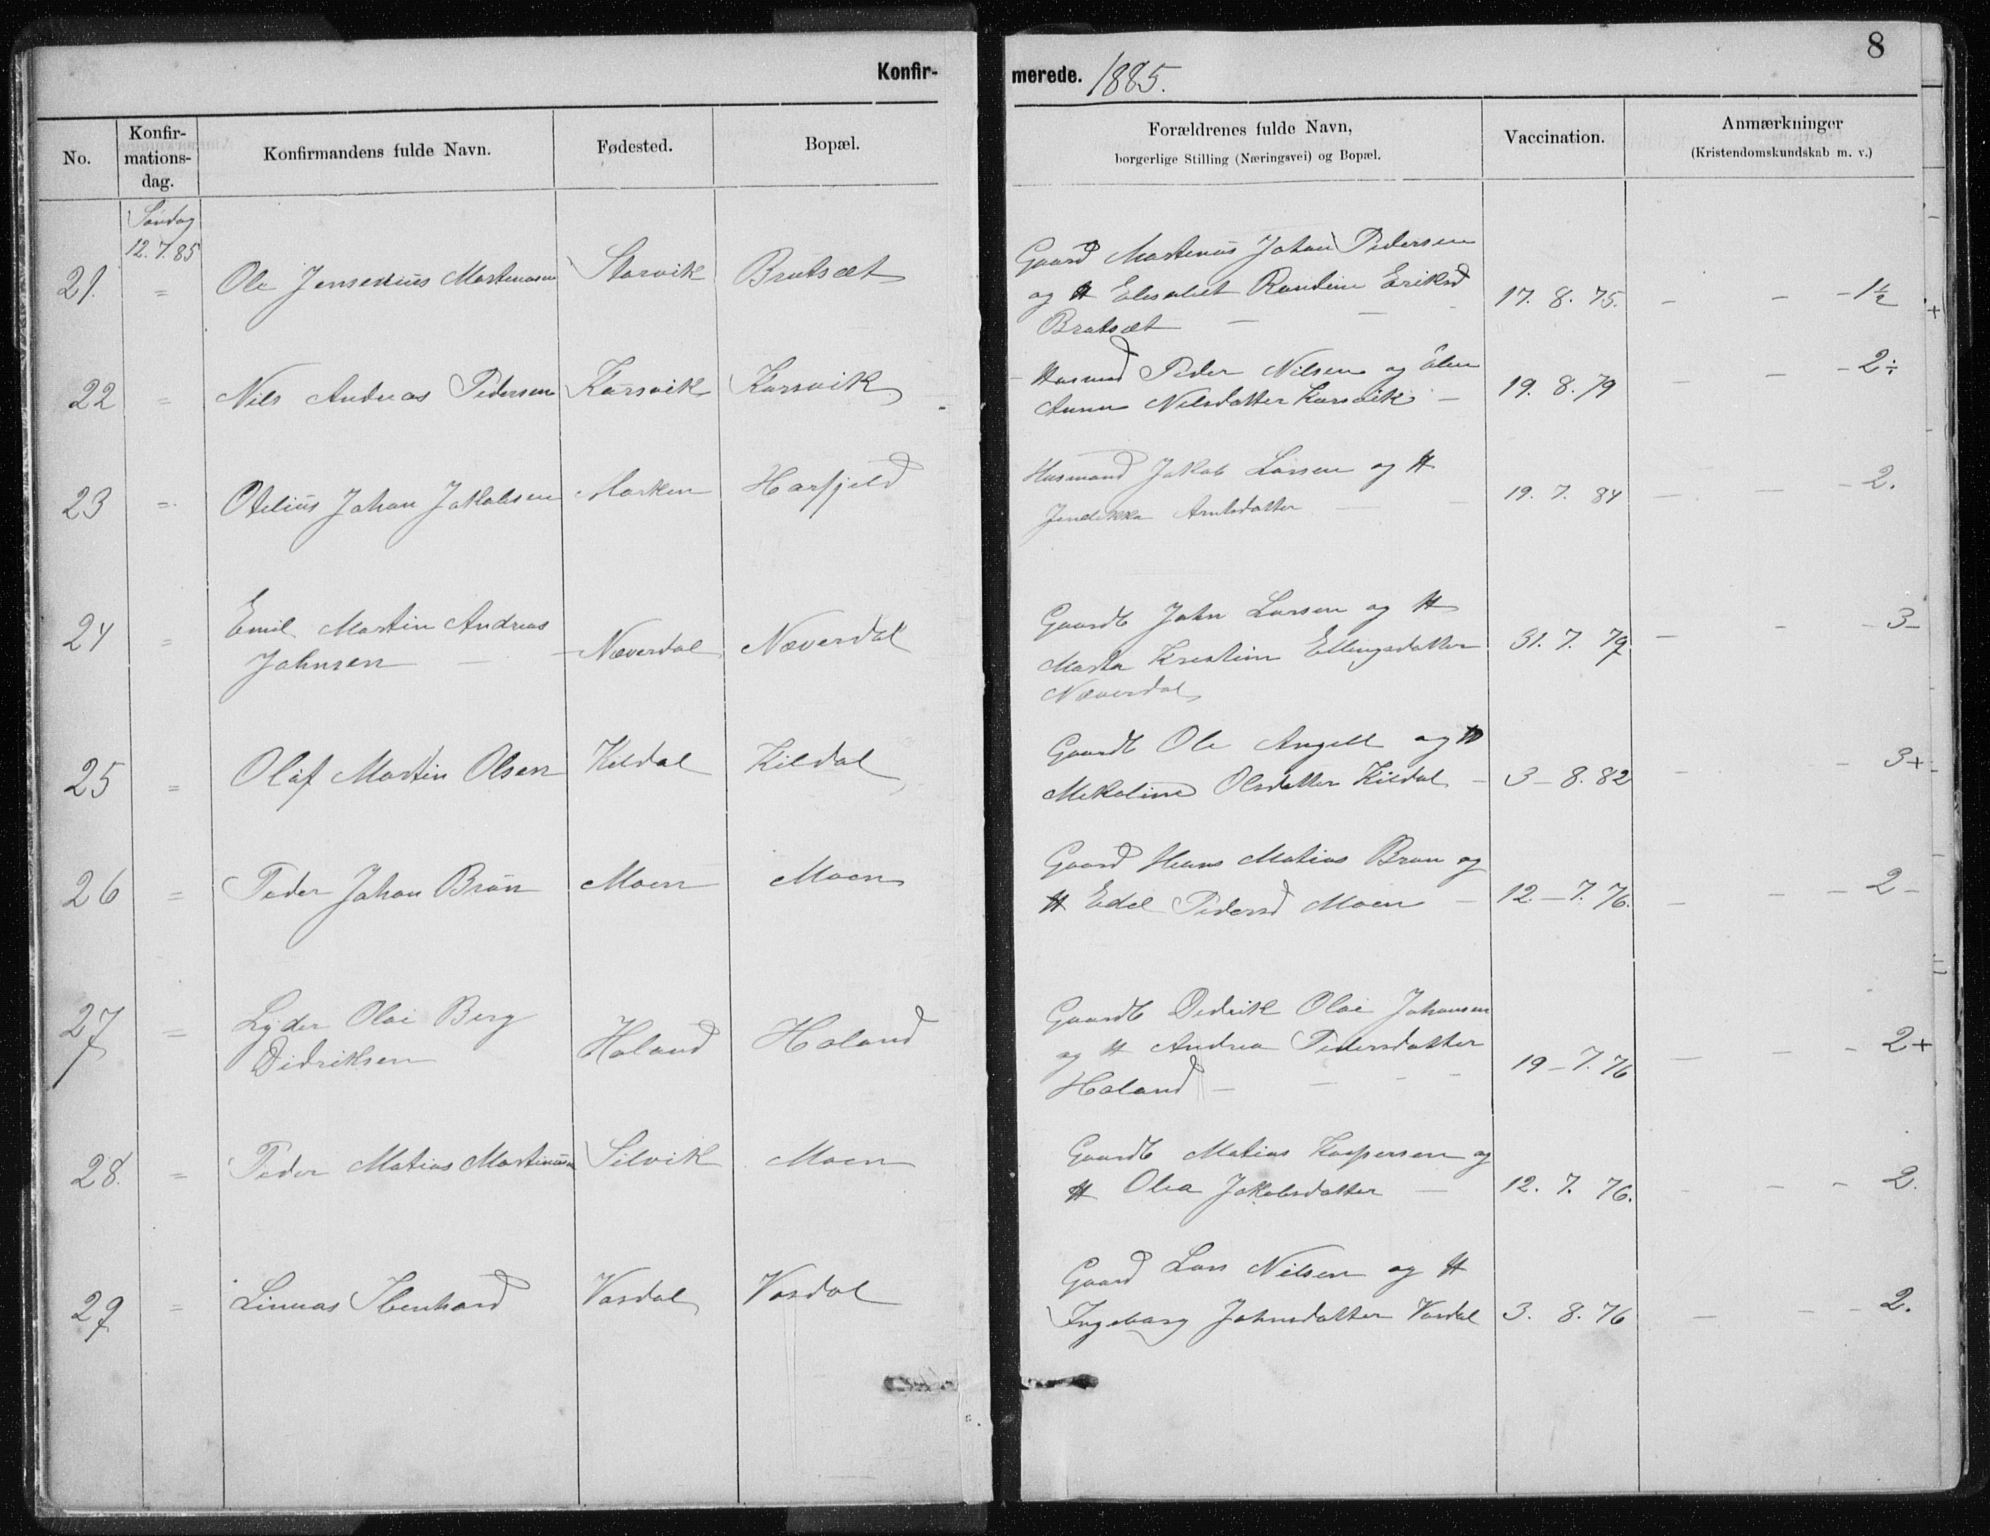 8
Konfirmerede. 1885.
No. Konfir-mations-dag. Konfirmandens fulde Navn. Fødested. Bopæl. Forældrenes fulde Navn, borgerlige Stilling (Næringsvei) og Bopæl. Vaccination. Anmærkninger (Kristendomskundskab m. v.)
Søndag
12.7.85
21. = Ole Jensenius Martinusen Storvik Bratsæt Gaard Martinus Johan Pedersen
og H Elisabet Randine Eriksd 17. 8. 75. — — — 1½
Bratsæt — —
22 = Nils Andreas Pedersen Karsvik Karsvik Husmand Peder Nilsen og
Anna Nilsdatter Karsvik — 19. 8. 79 — — — 2÷
23 = Otelius Johan Jakobsen Marken Harfjeld Husmand Jakob Larsen og H
Arntsdatter — — 19. 7. 84 — — — 2.
24 = Emil Martin Andreas
Johnsen — — Næverdal Næverdal Gaardb John Larsen og H
Marta Kristine Ellingsdatter 31. 7. 79 — — — 3-
Næverdal
25 = Olaf Martin Olsen Kildal Kildal Gaardb Ole Angell og H
Mekaline Olsdatter Kildal — 3-8.82 — — 3+
26 = Peder Johan Brun Moen Moen Gaard Hans Matias Brun og
H Edel Pedersd Moen — 12.-7.76. — — — 2-
27 = Lyder Olai Berg
Didriksen Haland Haland Gaardb Didrik Olai Johansen
og H Andrea Pedersdatter
Haland — — 19-7.76 — — — 2+
28. = Peder Matias Martinusen Selvik Moen Gaardb Matias Kaspersen og
H Olea Jakobsdatter — 12. 7. 76. — — — 2.
29 = Linnas Ibenhard Vasdal Vasdal Gaard Lars Nilsen og H
Ingeborg Johnsdatter Vasdal 3. 8. 76 — — — 2.